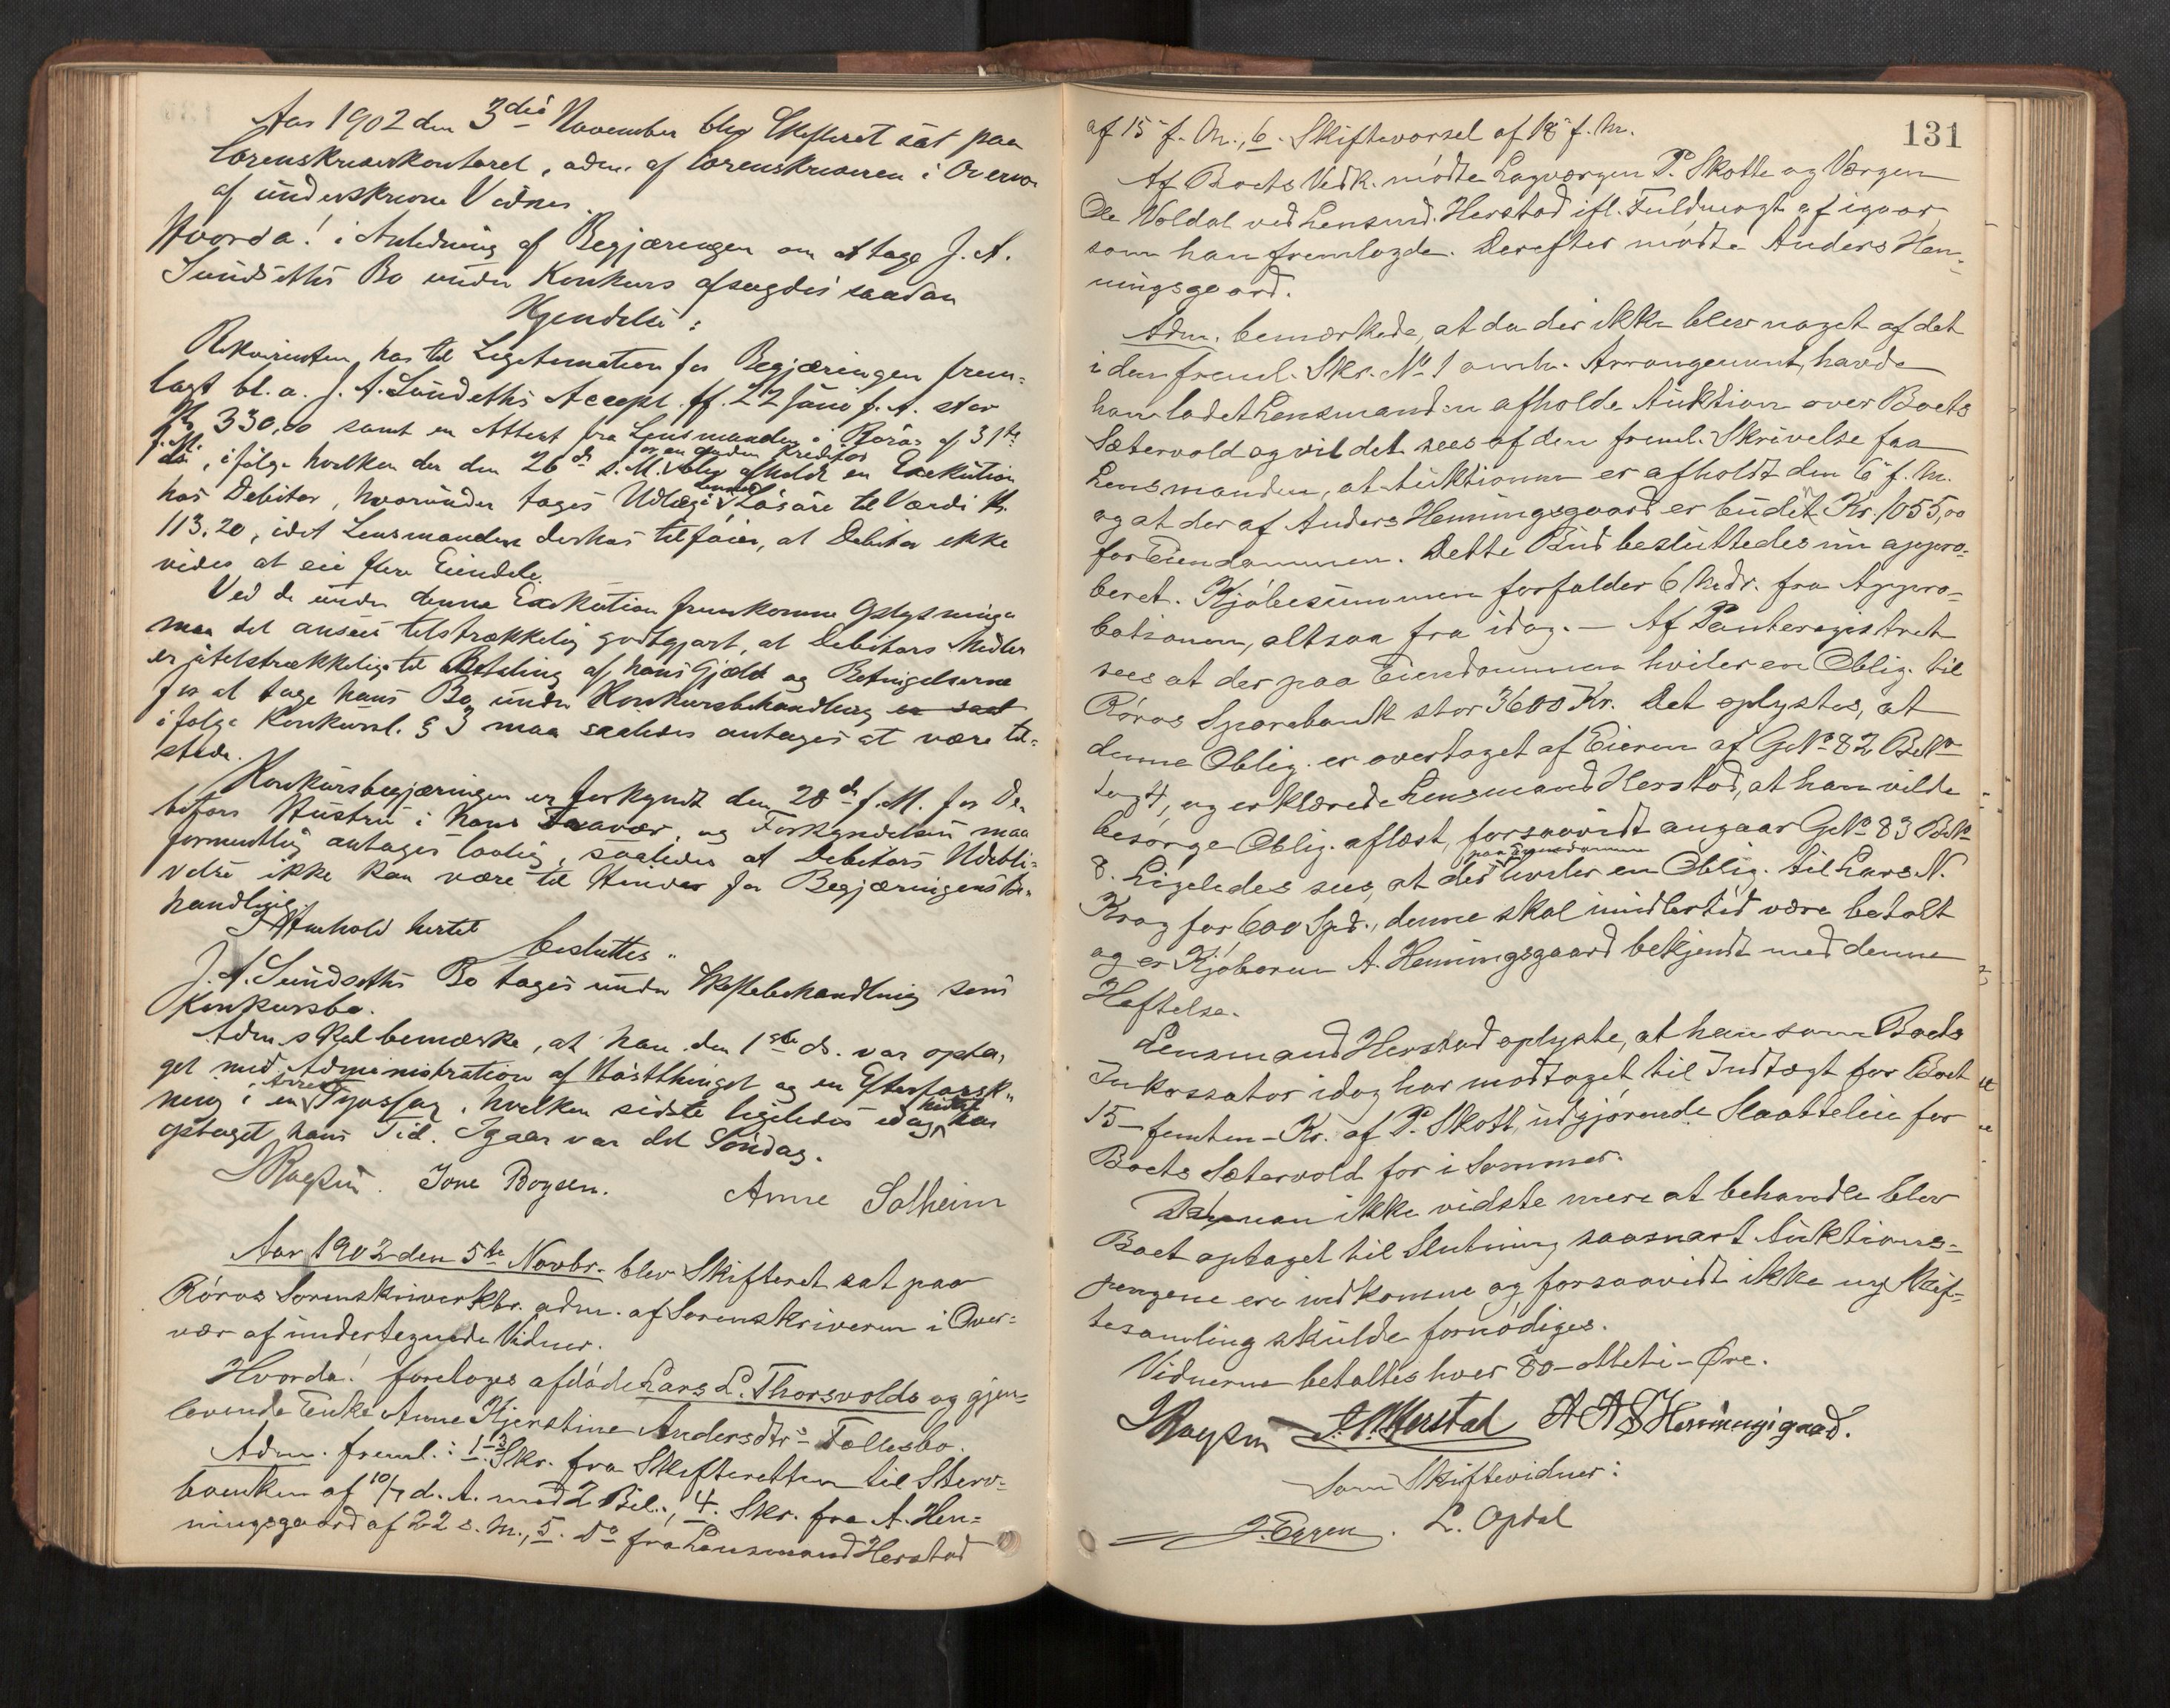 Aar 1902 den 3die November blev Skifteret sat paa
Sorenskriverkontoret, adm. af Sorenskriveren i Overvær
af underskrevne Vidner.
Hvorda! i Anledning af Begjæringen om at tage J. A.
Sundseths Bo under Konkurs afsagdes saadan
Kjendelse:
Rekvirenten har til Legitimation for Begjæringen frem-
lagt bl. a. J. A. Sundseths Accept ff. 22 Juni f. A. stor
Kr 330,00 samt en Attest fra Lensmanden i Røros af 31te
f. M., ifølge hvilken der den 26de s. M. for en anden Kreditor blev afholdt en Exekution
hos Debitor, hvorunder toges Udlæg i Løsøre til Værdi Kr.
113.20, idet Lensmanden derhos tilføier, at Debitor ikke
vides at eie flere Eiendele.
Ved de under denne Exekution fremkomne Oplysninger
maa det ansees tilstrækkelig godtgjort, at Debitors Midler
er utilstrækkelige til Betaling af hans Gjæld og Betingelserne
for at tage hans Bo under Konkursbehandling
ifølge Konkursl. § 3 maa saaledes antages at være til-
stede.
Konkursbegjæringen er forkyndt den 28de f. M. for De-
bitors Hustru i hans Fravær, og Forkyndelsen maa
formentlig antages lovlig, saaledes at Debitors Udebli-
velse ikke kan være til Hinder for Begjæringens Be-
handling.
I Henhold hertil
besluttes:
J. A. Sundseths Bo tages under Skiftebehandling som
Konkursbo.
Adm. skal bemærke, at han den 1ste ds. var opta-
get med Administration af Høstthinget og en Efterforsk-
ning i en Arrest Tyvssag, hvilken sidste ligeledes idag hidtil har
optaget hans Tid. Igaar var det Søndag.
Tone Boysen. Anne Solheim
Aar 1902 den 5te Novbr. blev Skifteret sat paa
Røros Sorenskriverktr. adm. af Sorenskriveren i Over-
vær af undertegnede Vidner.
Hvorda! foretoges afdøde Lars L. Thorsvolds og gjen-
levende Enke Anne Kjerstine Andersdtr's Fællesbo.
Adm. freml.: 1-3. Skr. fra Skifteretten til Sterv-
boenken af 10/7 d. A. med 2 Bil., 4. Skr. fra A. Hen-
ningsgaard af 22 s. M., 5. Do fra Lensmand Herstad
131
af 15 f. M., 6. Skiftevarsel af 18 f. M.
Af Boets Vedk. mødte Lagværgen P. Skott og Værgen
Ole Voldal ved Lensmd. Herstad ifl. Fuldmagt af igaar,
som han fremlagde. Derefter mødte Anders Hen-
ningsgaard.
Adm. bemærkede, at da der ikke blev noget af det
i den freml. Skr. No 1 omh. Arrangement, havde
han ladet Lensmanden afholde Auktion over Boets
Sætervold og vil det sees af den freml. Skrivelse fra
Lensmanden, at Auktionen er afholdt den 6 f. M.
og at der af Anders Henningsgaard er budt Kr. 1055,00
for Eiendommen. Dette Bud besluttedes nu appro-
beret. Kjøbesummen forfalder 6 Mdr. fra Appro-
bationen, altsaa fra idag. — Af Panteregistret
sees at der paa Eiendommen hviler en Oblig. til
Røros Sparebank stor 3600 Kr. Det oplystes, at
denne Oblig. er overtaget af Eieren af GNo 82 BNo
1 og 4, og erklærede Lensmand Herstad, at han vilde
besørge Oblig. aflæst, forsaavidt angaar GNo 83 BNo
8. Ligeledes sees, at der paa Eiendommen hviler en Oblig. til Lars N.
Krog for 600 Spd., denne skal imidlertid være betalt
og er Kjøberen A. Henningsgaard bekjendt med denne
Heftelse.
Lensmand Herstad oplyste, at han som Boets
Inkassator idag har modtaget til Indtægt for Boet
15 - femten - Kr. af P. Skott, udgjørende Slaatteleie for
Boets Sætervold for i Sommer.
Da man ikke vidste mere at behandle blev
Boet optaget til Slutning saasnart Auktions-
pengene ere indkomne og forsaavidt ikke ny Skif-
tesamling skulde fornødiges.
Vidnerne betaltes hver 80 - otteti - Øre.
Herstad A A Henningsgaard.
Som Skiftevidner:
J. Eggen. L. Opdal